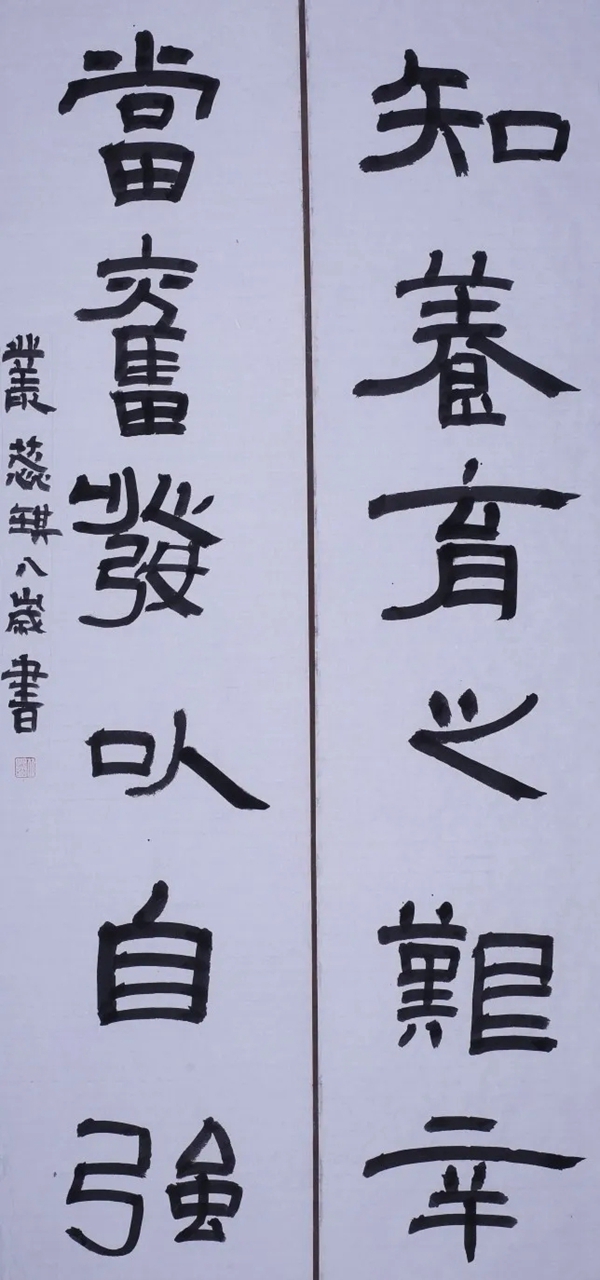 知養育之艱辛
當奮發以自強
叢蕊琪八歲書